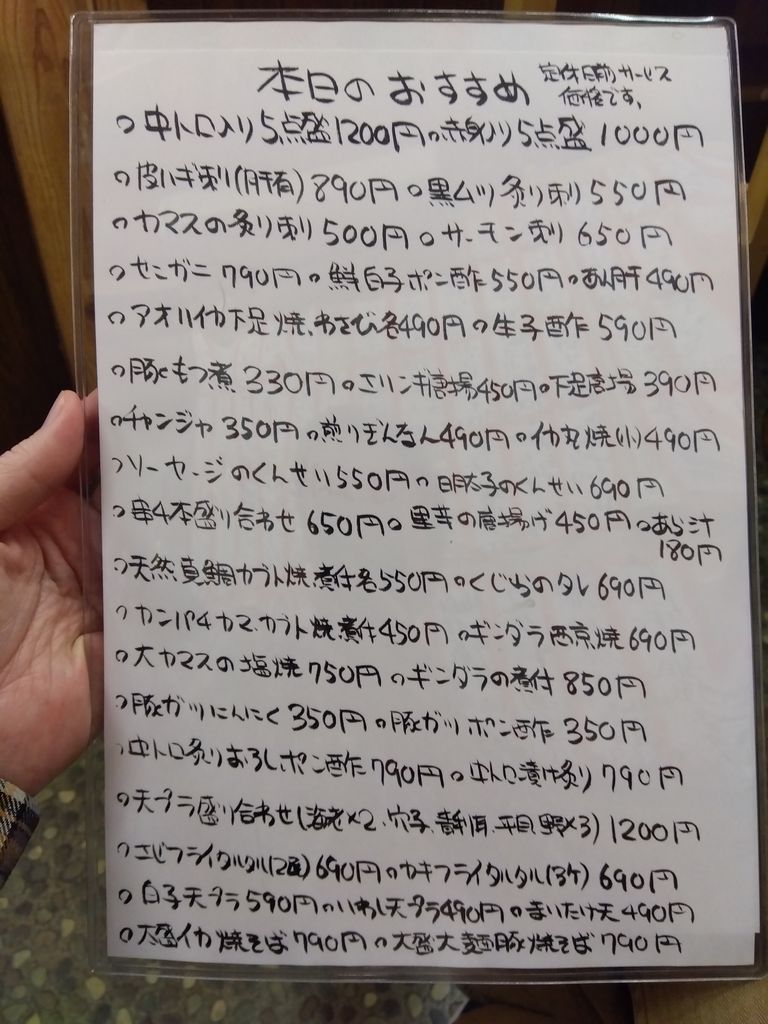 本日のおすすめ
定休日前サービス
価格です。
○中トロ入り5点盛1200円○赤身入り5点盛1000円
○皮ハギ刺(肝有)890円○黒ムツ炙り刺550円
○カマスの炙り刺500円○サーモン刺650円
○セコガニ790円○鮮白子ポン酢550円○あん肝490円
○アオリイカ下足焼、わさび各490円○生子酢590円
○豚もつ煮330円○エリンギ唐揚450円○下足唐揚390円
○チャンジャ350円○煎りぎんなん490円○イカ丸焼(小)490円
○ソーセージのくんせい550円○明太子のくんせい690円
○串4本盛り合わせ650円○里芋の唐揚げ450円○あら汁
180円
○天然真鯛カブト焼、煮付各550円○くじらのタレ690円
○カンパチカマ、カブト焼、煮付450円○ギンダラ西京焼690円
○大カマスの塩焼750円○ギンダラの煮付850円
○豚ガツにんにく350円○豚ガツポン酢350円
○中トロ炙りおろしポン酢790円○中トロ漬け炙り790円
○天プラ盛り合わせ(海老×2、穴子、平目、野×3)1200円
○エビフライタルタル(2匹)690円○カキフライタルタル(3ケ)690円
○白子天プラ590円○いわし天プラ490円○まいたけ天490円
○大盛イカ焼そば790円○大盛大麺豚焼そば790円